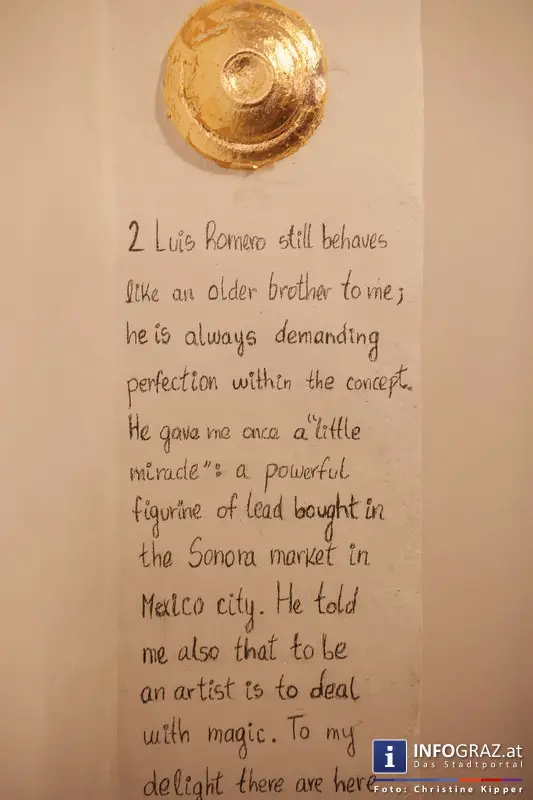 2 Luis Romero still behaves
like an older brother to me;
he is always demanding
perfection within the concept.
He gave me once a "little
miracle": a powerful
figurine of lead bought in
the Sonora market in
Mexico city. He told
me also that to be
an artist is to deal
with magic. To my
delight there are here
i INFOGRAZ.at
Das Stadtportal
Foto: Christine Kipper